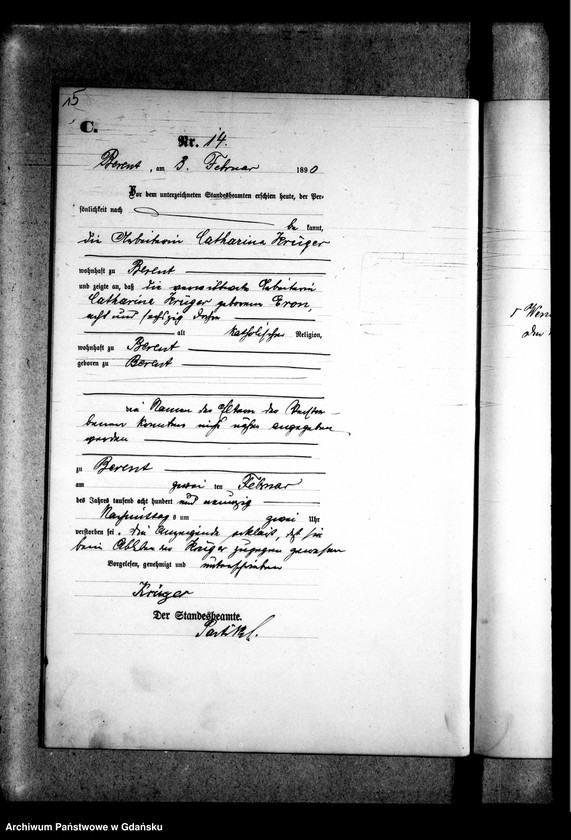 15
C.
Nr. 14.
Berent, am 3. Februar 1890
Vor dem unterzeichneten Standesbeamten erschien heute, der Per-
sönlichkeit nach
be kannt,
die Arbeiterin Catharina Krüger
wohnhaft zu Berent
und zeigte an, daß die verwittwete Arbeiterin
Catharine Krüger geborene Eron,
acht und sechszig Jahre
alt katholischer Religion,
wohnhaft zu Berent
geboren zu Berent
die Namen der Eltern der Verstor-
benen konnten nicht näher angegeben
werden
zu Berent
am zwei ten Februar
des Jahres tausend acht hundert und neunzig
Nachmittag s um zwei Uhr
verstorben sei. Die Anzeigende erklärt, daß sie
beim Ableben der Krüger zugegen gewesen
Vorgelesen, genehmigt und unterschrieben
Krüger
Der Standesbeamte.
Archiwum Państwowe w Gdańsku